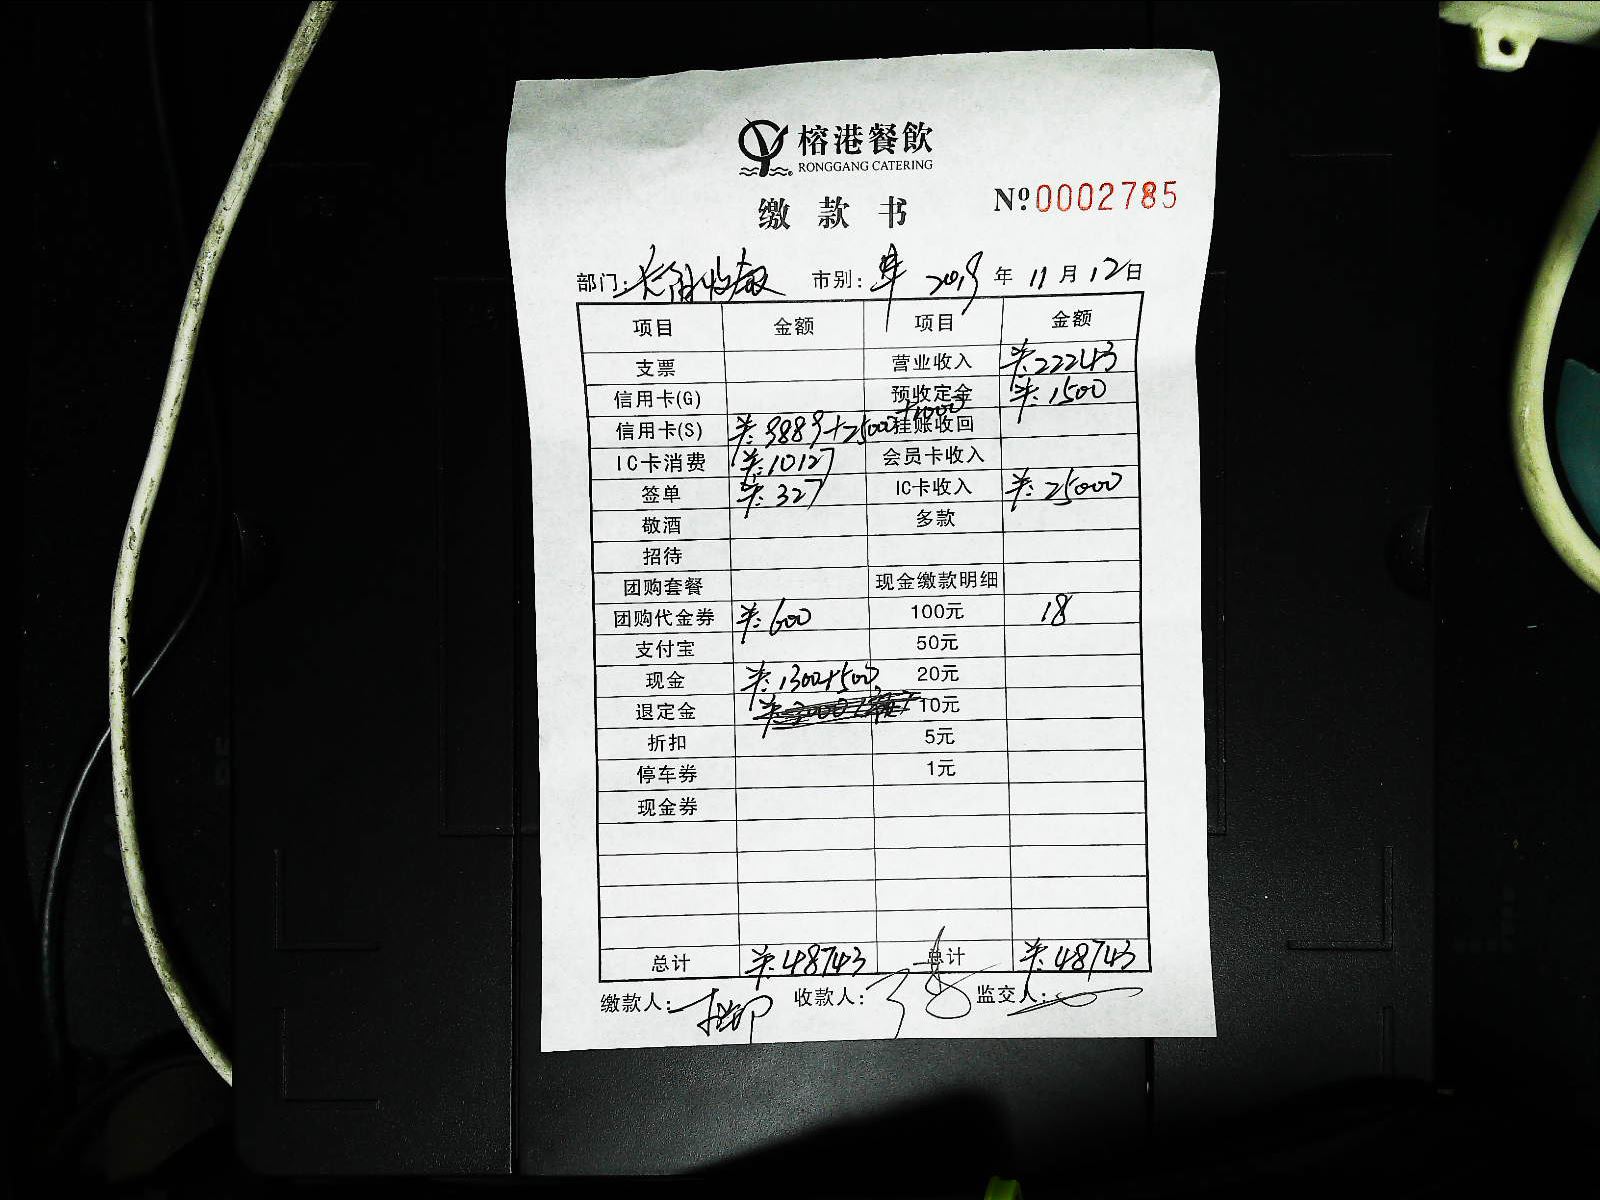 榕港餐飲
RONGGANG CATERING
缴款书
№0002785
部门: 市别: 2019年11月12日
项目 金额 项目 金额
支票 营业收入 ¥:22243
信用卡(G) 预收定金 ¥:1500
信用卡(S) ¥:9889+25000+1000 挂账收回
IC卡消费 ¥:10127 会员卡收入
签单 ¥:327 IC卡收入 ¥:25000
敬酒 多款
招待
团购套餐 现金缴款明细
团购代金券 ¥:600 100元 18
支付宝 50元
现金 ¥:1300+500 20元
退定金 10元
折扣 5元
停车券 1元
现金券
总计 ¥:48743 总计 ¥:48743
缴款人: 收款人: 监交人: